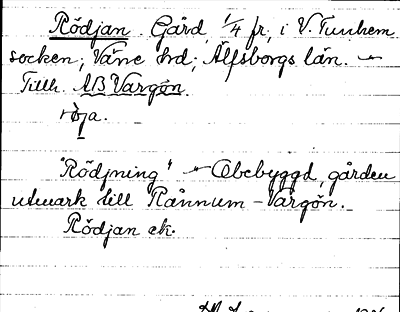 Rödjan Gård, 1/4 fr, i V. Tunhem
socken; Väne hrd; Älfsborgs län. –
Tillh. AB Vargön.
röja.
"Rödjning" – Obebyggd, gården
utmark till Rånnum – Vargön.
Rödjan ek.